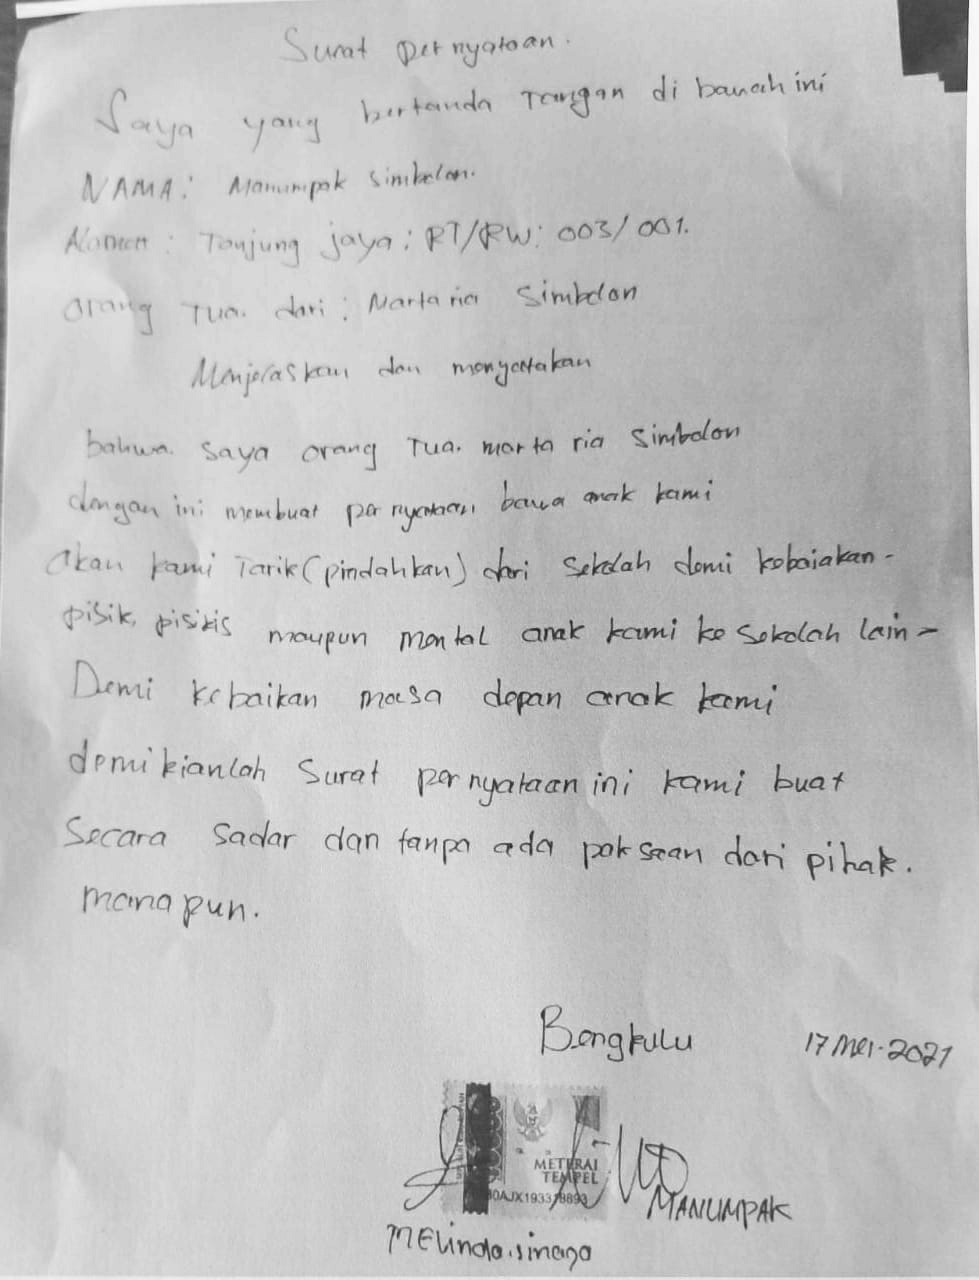 Surat pernyataan.
Saya yang bertanda Tangan di bawah ini
NAMA: Manumpak Simbolon.
Alamat : Tanjung jaya : RT/RW: 003/001.
Orang Tua. dari : Marta ria Simbolon
Menjelaskan dan menyatakan
bahwa. saya orang Tua. marta ria Simbolon
dengan ini membuat pernyataan bawa anak kami
akan kami Tarik (pindahkan) dari Sekolah demi kebaiakan-
pisik, pisikis maupun mental anak kami ke Sekolah lain-
Demi kebaikan masa depan anak kami
demikianlah Surat pernyataan ini kami buat
Secara sadar dan tanpa ada paksaan dari pihak.
manapun.
Bengkulu 17 Mei-2021
METERAI
TEMPEL
MANUMPAK
MELinda.sinaga